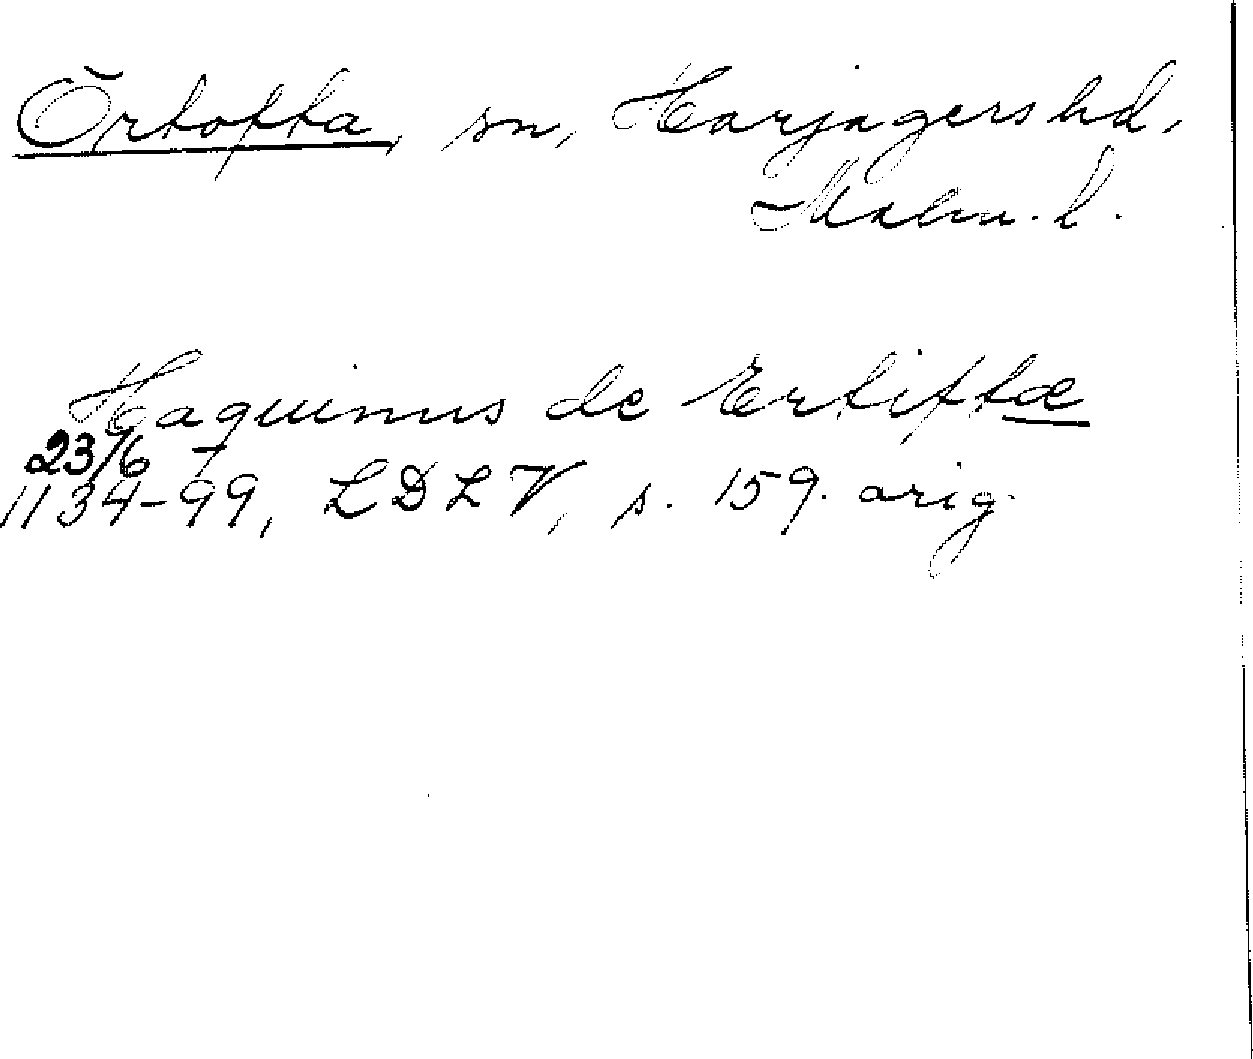 Örtofta, sn, Harjagers hd,
Malm. l.
Haquinus de Ertiftæ
23/6 †
1134-99, LDLV, s. 159. orig.